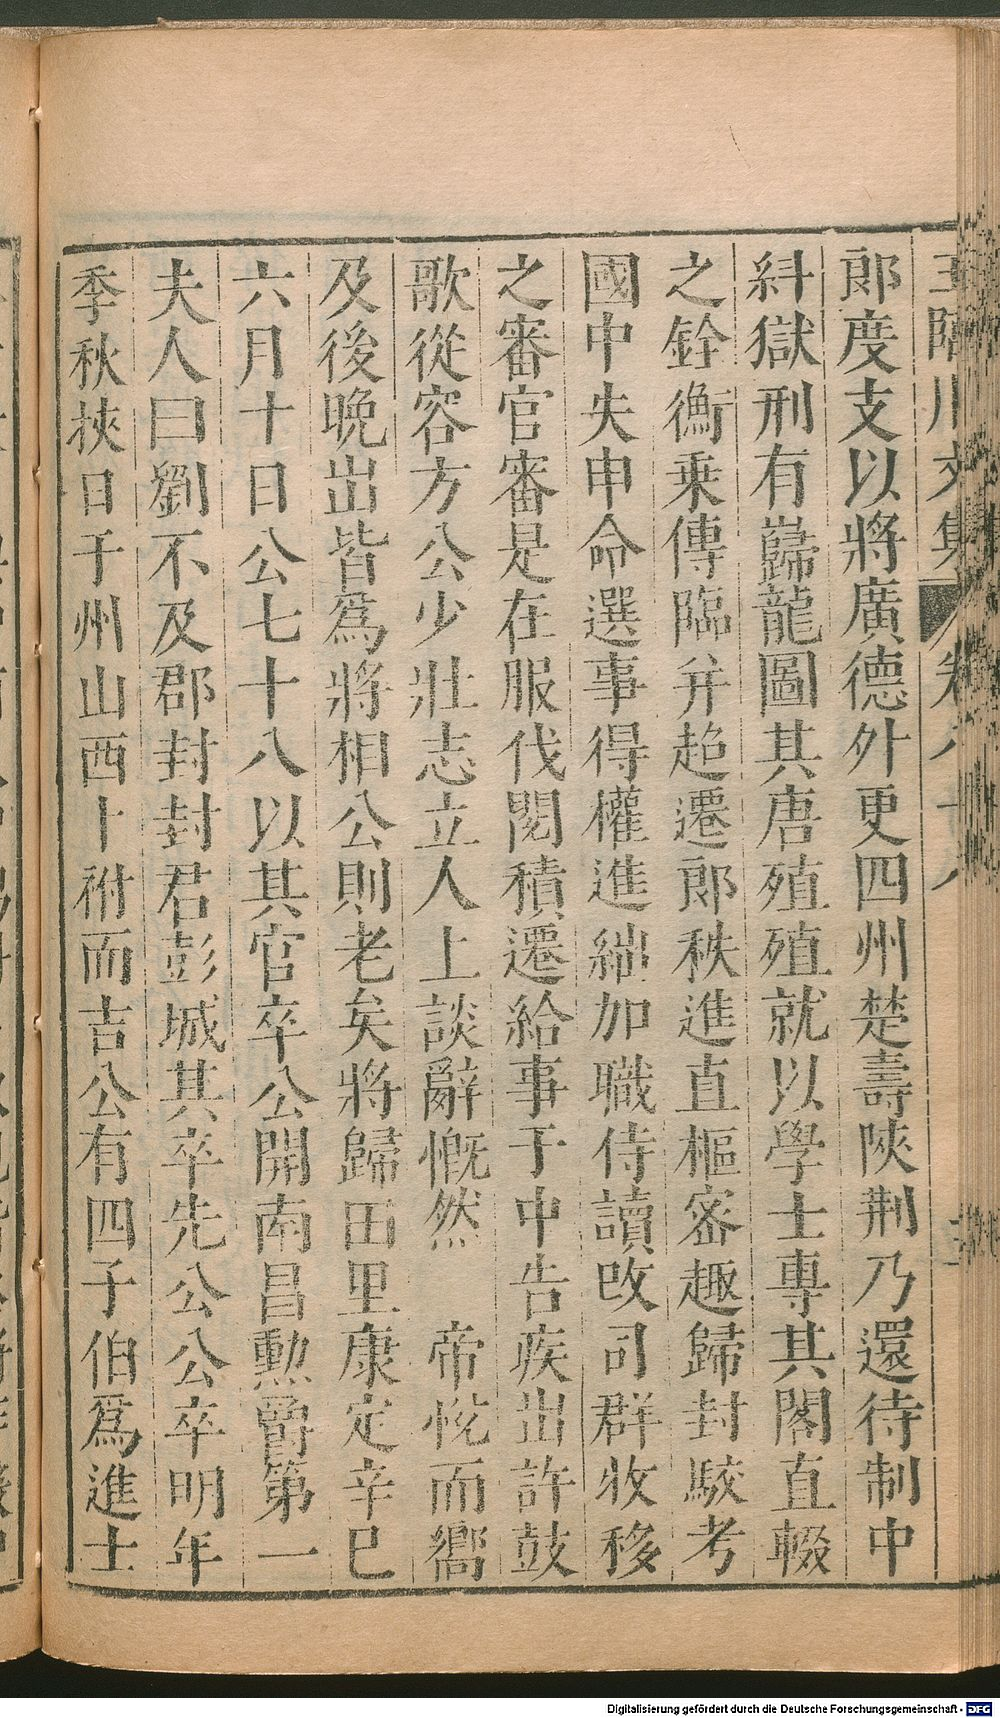 王臨川文集 卷八十八
郎度支以將廣德外更四州楚壽陝荆乃還待制中
糾獄刑有歸龍圖其唐殖殖就以學士專其閣直輟
之銓衡乘傳臨弁趋遷郎秩進直樞密趣歸封駮考
國中失申命選事得權進繃加職侍讀改司群牧移
之審官審是在服伐閱積遷給事于中告疾出許鼓
歌從容方公少壯志立人上談辭慨然 帝悅而嚮
及後晚出皆爲將相公則老矣將歸田里康定辛巳
六月十日公七十八以其官卒公開南昌勲爵第一
夫人曰劉不及郡封封君彭城其卒先公公卒明年
季秋挾日于州山西卜祔而吉公有四子伯爲進士
Digitalisierung gefördert durch die Deutsche Forschungsgemeinschaft - DFG